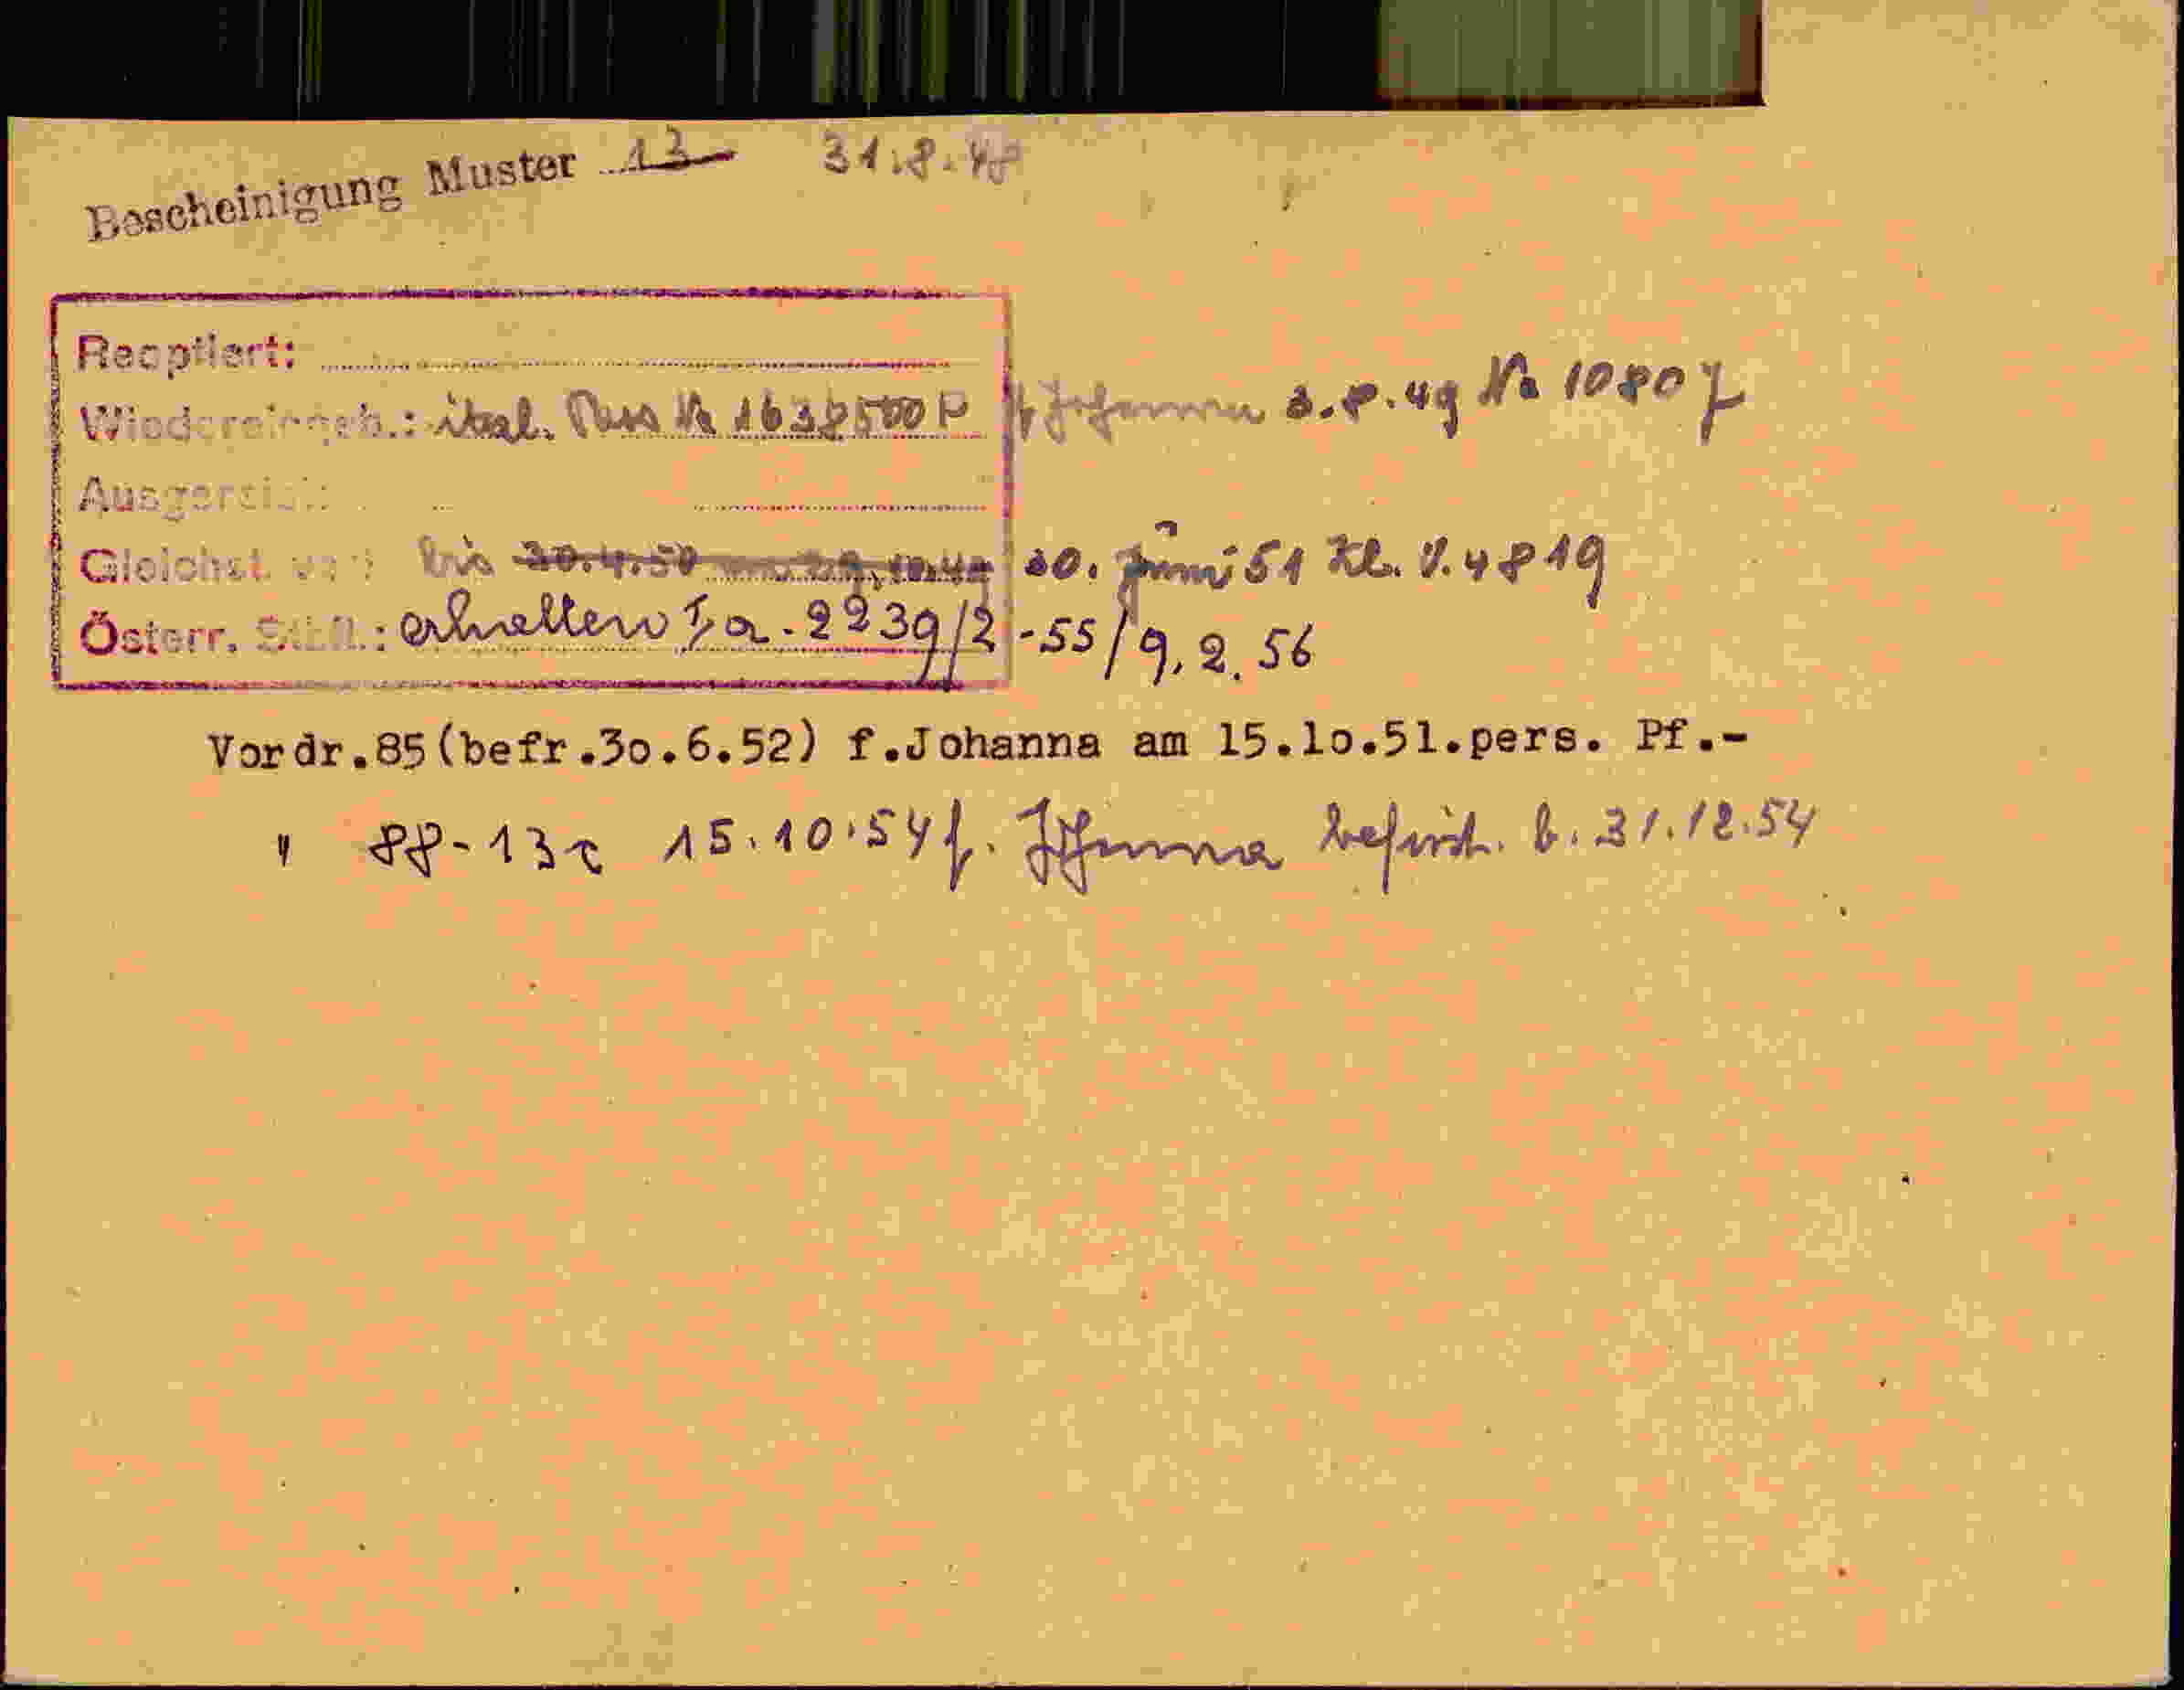 Bescheinigung Muster 13 31.8.48
Reoptiert:
Wiedereingeb.: ital. Pass No 1638500 P f Johanna 3.8.49 No 10807
Ausgereist:
Gleichst. ver: bis 30.4.50 30. Juni 51 Zl. V. 4819
Österr. Stb.: erhalten I/a-2239/2-55/9.2.56
Vordr.85(befr.3o.6.52) f.Johanna am 15.1o.51.pers. Pf.-
" 88-13c 15.10.54 f. Johanna befrist. b. 31.12.54